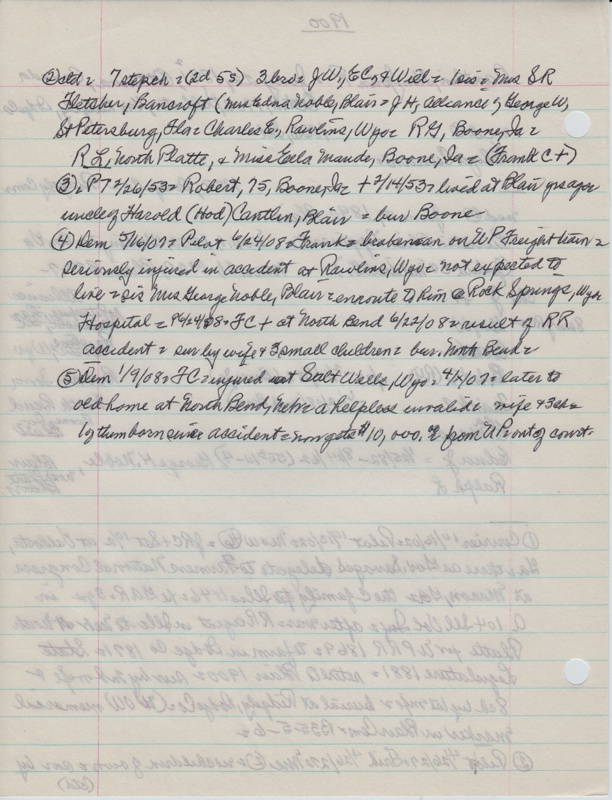 1900
② ctd = 7 stepch = (2d 5s) 3 bro = J W, E C, & Will = 1 sis = Mrs S R
Fletcher, Bancroft (Mrs Edna Noble, Blair = J H, Alliance, George W,
St Petersburg, Fla = Charles E, Rawlins, Wyo = R G, Boone, Ia =
R L, North Platte, & Miss Eela Maude, Boone, Ia = (Frank C +)
③ P 7 2/26/53 = Robert, 75, Boone, Ia + 2/14/53 = lived at Blair yrs ago =
uncle of Harold (Hod) Cantlin, Blair = bur Boone
④ Dem 5/16/07 = Pilot 6/24/08 = Frank = brakeman on UP Freight train =
seriously injured in accident at Rawlins, Wyo = not expected to
live = sis Mrs George Noble, Blair = enroute to him @ Rock Springs, Wyo
Hospital = 6/24/08 = F C + at North Bend 6/22/08 = result of RR
accident = sur by wife & 3 small children = bur North Bend =
⑤ Dem 1/9/08 = F C = injured at Salt Wells, Wyo = 4/ /07 = later to
old home at North Bend, Nebr a helpless invalid = wife & 3 ch =
1 of them born since accident = now gets $10,000. from UP out of court.